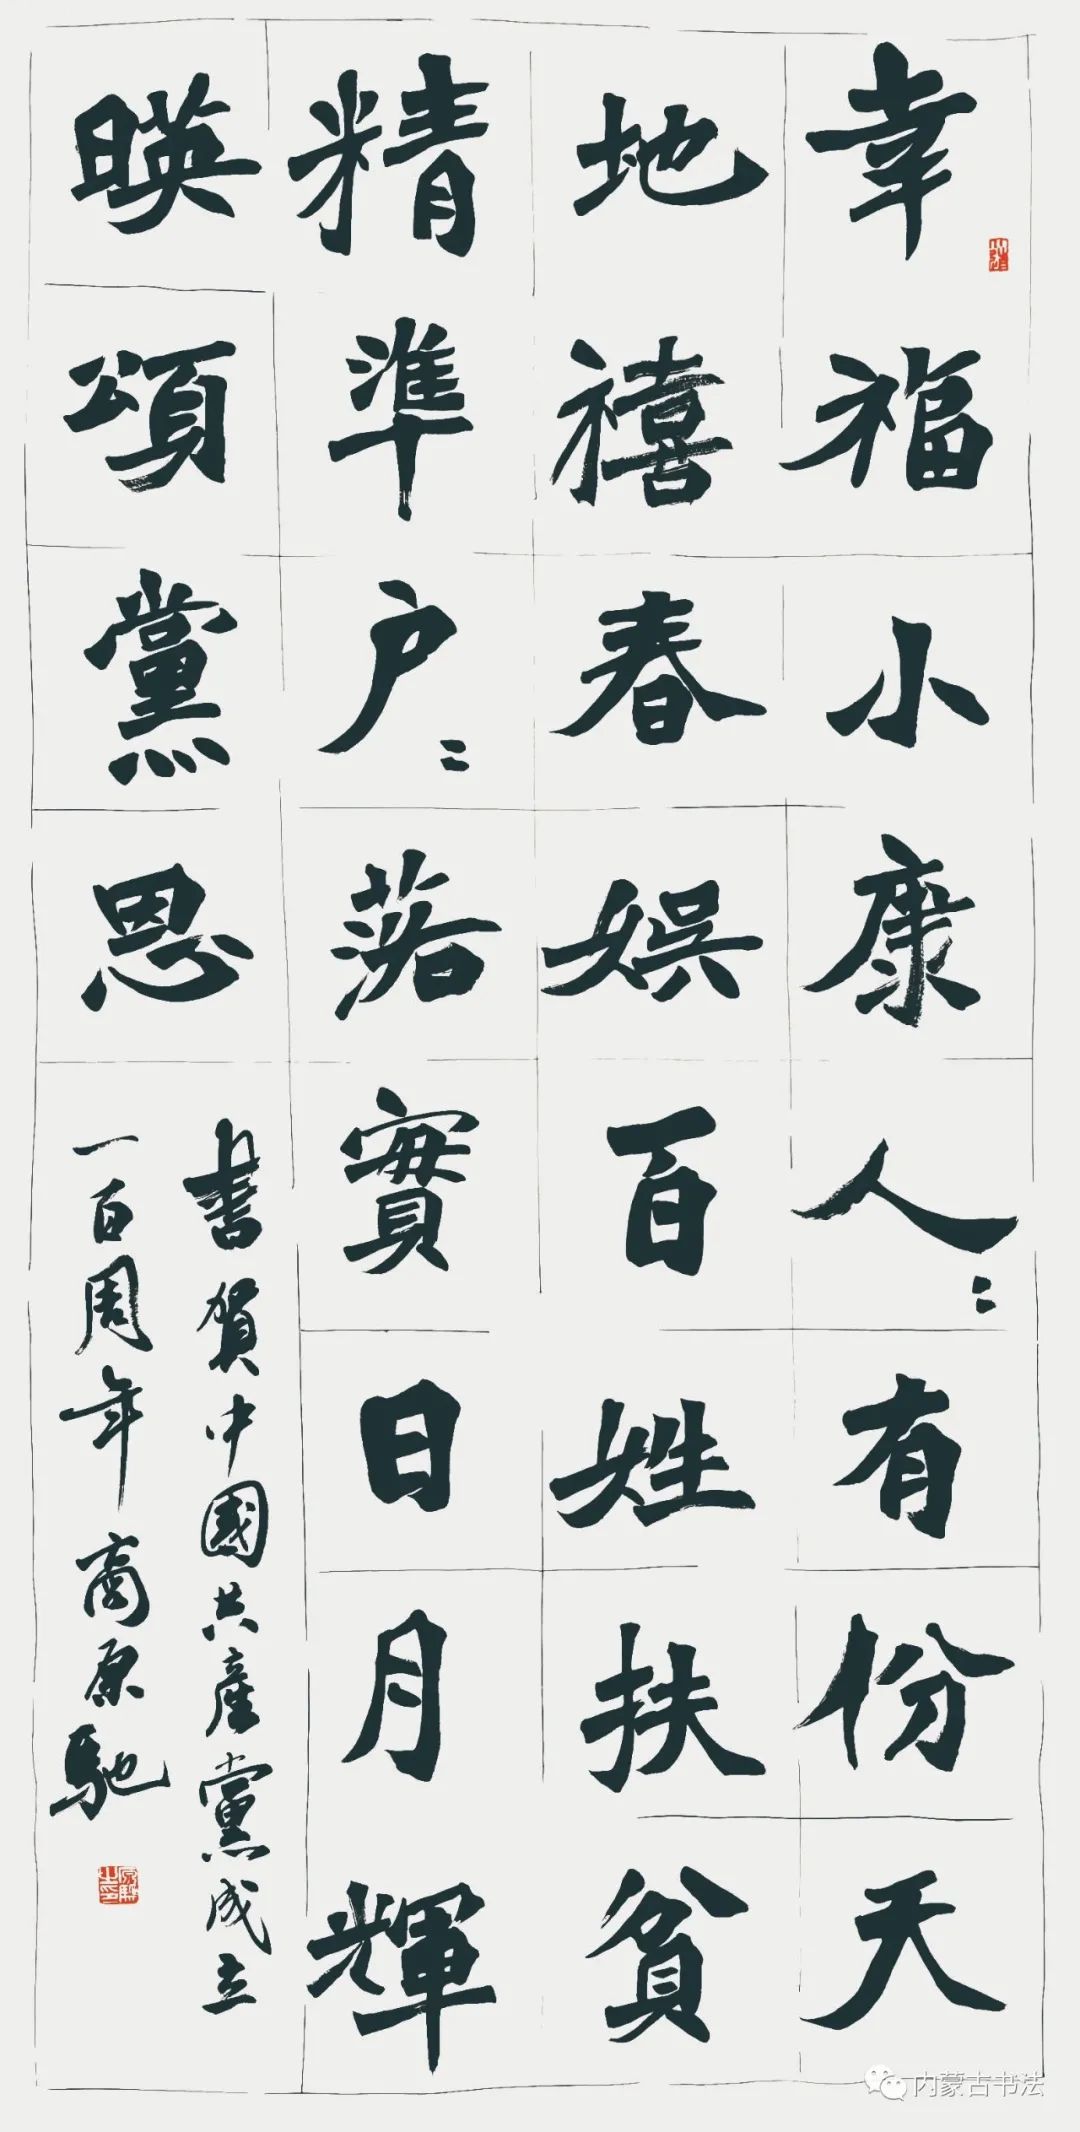 幸福小康人〻有份天
地禧春娱百姓扶貧
精準户〻落實日月輝
暎頌黨恩
書賀中國共產黨成立
一百周年商原馳
原馳之印
内蒙古书法